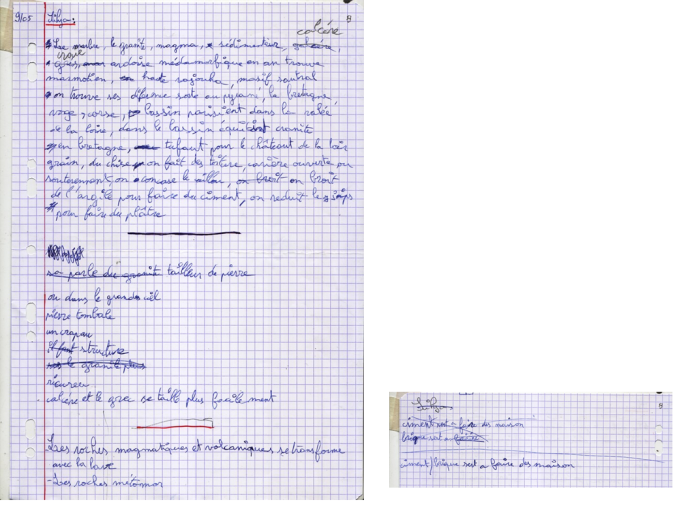 9/05
8
calcére
le marbre, le granite, magma, sédimenteur,
grese, ardoise médamorfique on an trouve
marmotien, haute sajouha, masif santral
on trouve ses déferense sorte au pyrané, la bretagne,
voge, corse, bassin parisient dans la valée
de la loire, dans le bassin équitint cranite
en bretagne, tafaut pour le châteaut de la loir
grain, du chise on fait des toiture, carière ouverte ou
souterrement, on conase le caillou, on broit on broit
de l'argile pour faire du ciment, on reduit le gips
pour faire du plâtre
sa parle du granite tailleur de pierre
ou dans le grande ciel
pierre tombale
un crapau
il faut structure
le granite plus
rigureu
calcere et le grec se taille plus facilement
Les roches magmatiques et volcaniques se transforme
avec la lave
-Les roches métamor
8
ciment sert a faire des maison
brique sert a faire
ciment/brique sert a faire des maison